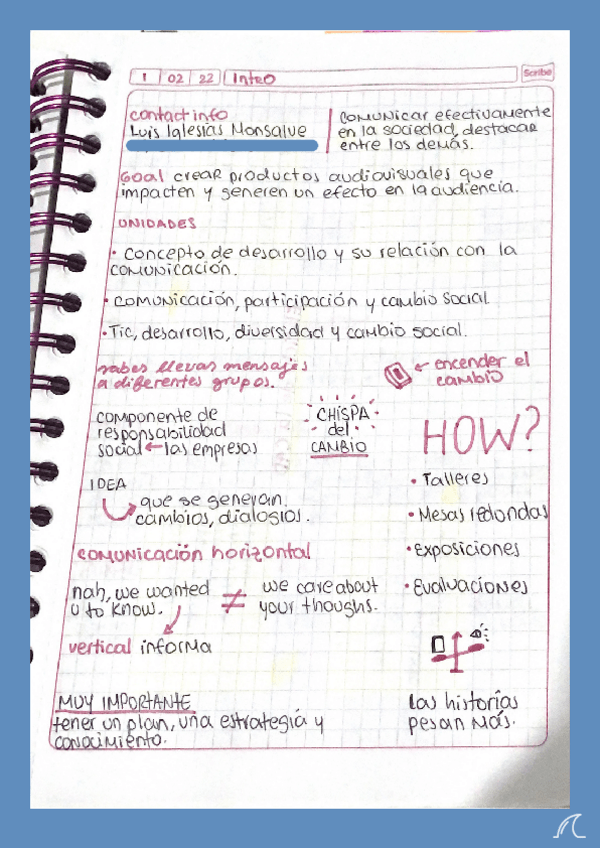 1 02 22 Intro
Scribe
contact info
Luis Iglesias Monsalve
comunicar efectivamente
en la sociedad, destacar
entre los demás.
Goal crear productos audiovisuales que
impacten y generen un efecto en la audiencia.
UNIDADES
• Concepto de desarrollo y su relación con la
comunicación.
• comunicación, participación y cambio social.
• Tic, desarrollo, diversidad y cambio social.
sabes llevas mensajes
a diferentes grupos.
← encender el
cambio
componente de
responsabilidad
social ← las empresas
CHISPA
del
CAMBIO
HOW?
• Talleres
• Mesas redondas
• Exposiciones
• Evaluaciones
IDEA
que se generan
cambios, dialogios.
comunicación horizontal
nah, we wanted
u to know.
≠
we care about
your thoughs.
vertical informa
MUY IMPORTANTE
tener un plan, una estrategia y
conocimiento.
las historias
pesan más.